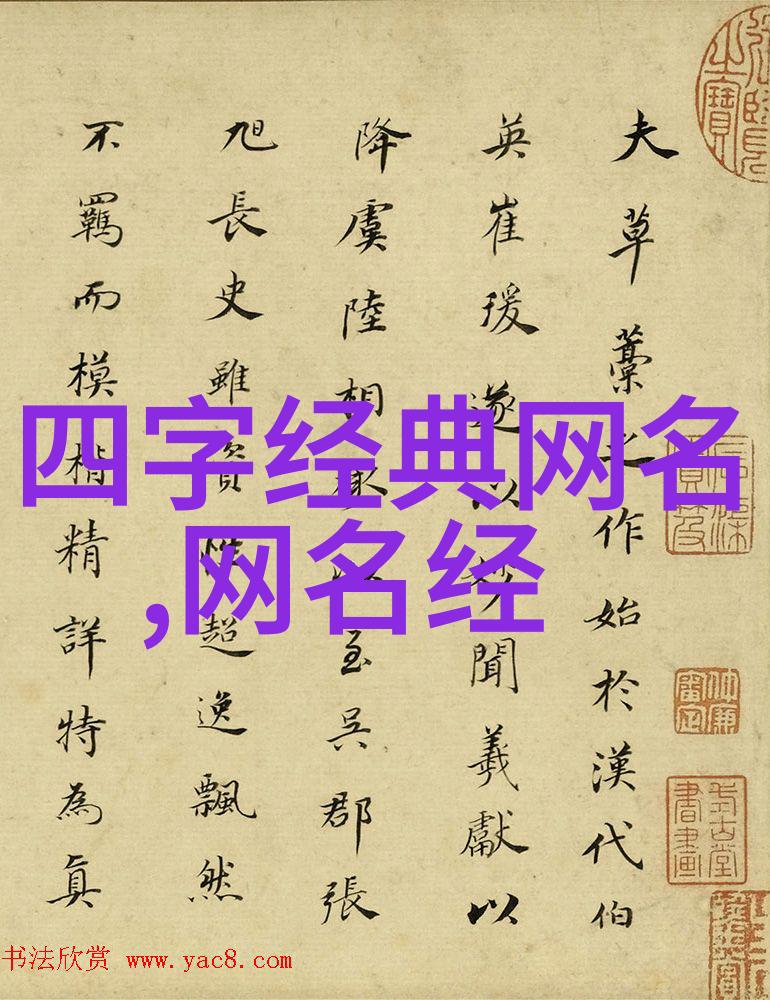 夫草藁之作始於漢代伯
英崔瑗遂以妙聞羲獻以
降虞陸相承以至吳郡張
旭長史雖資性超逸飄然
不羈而模楷精詳特為真
四字经典网名
,网名经
书法欣赏 www.yac8.com